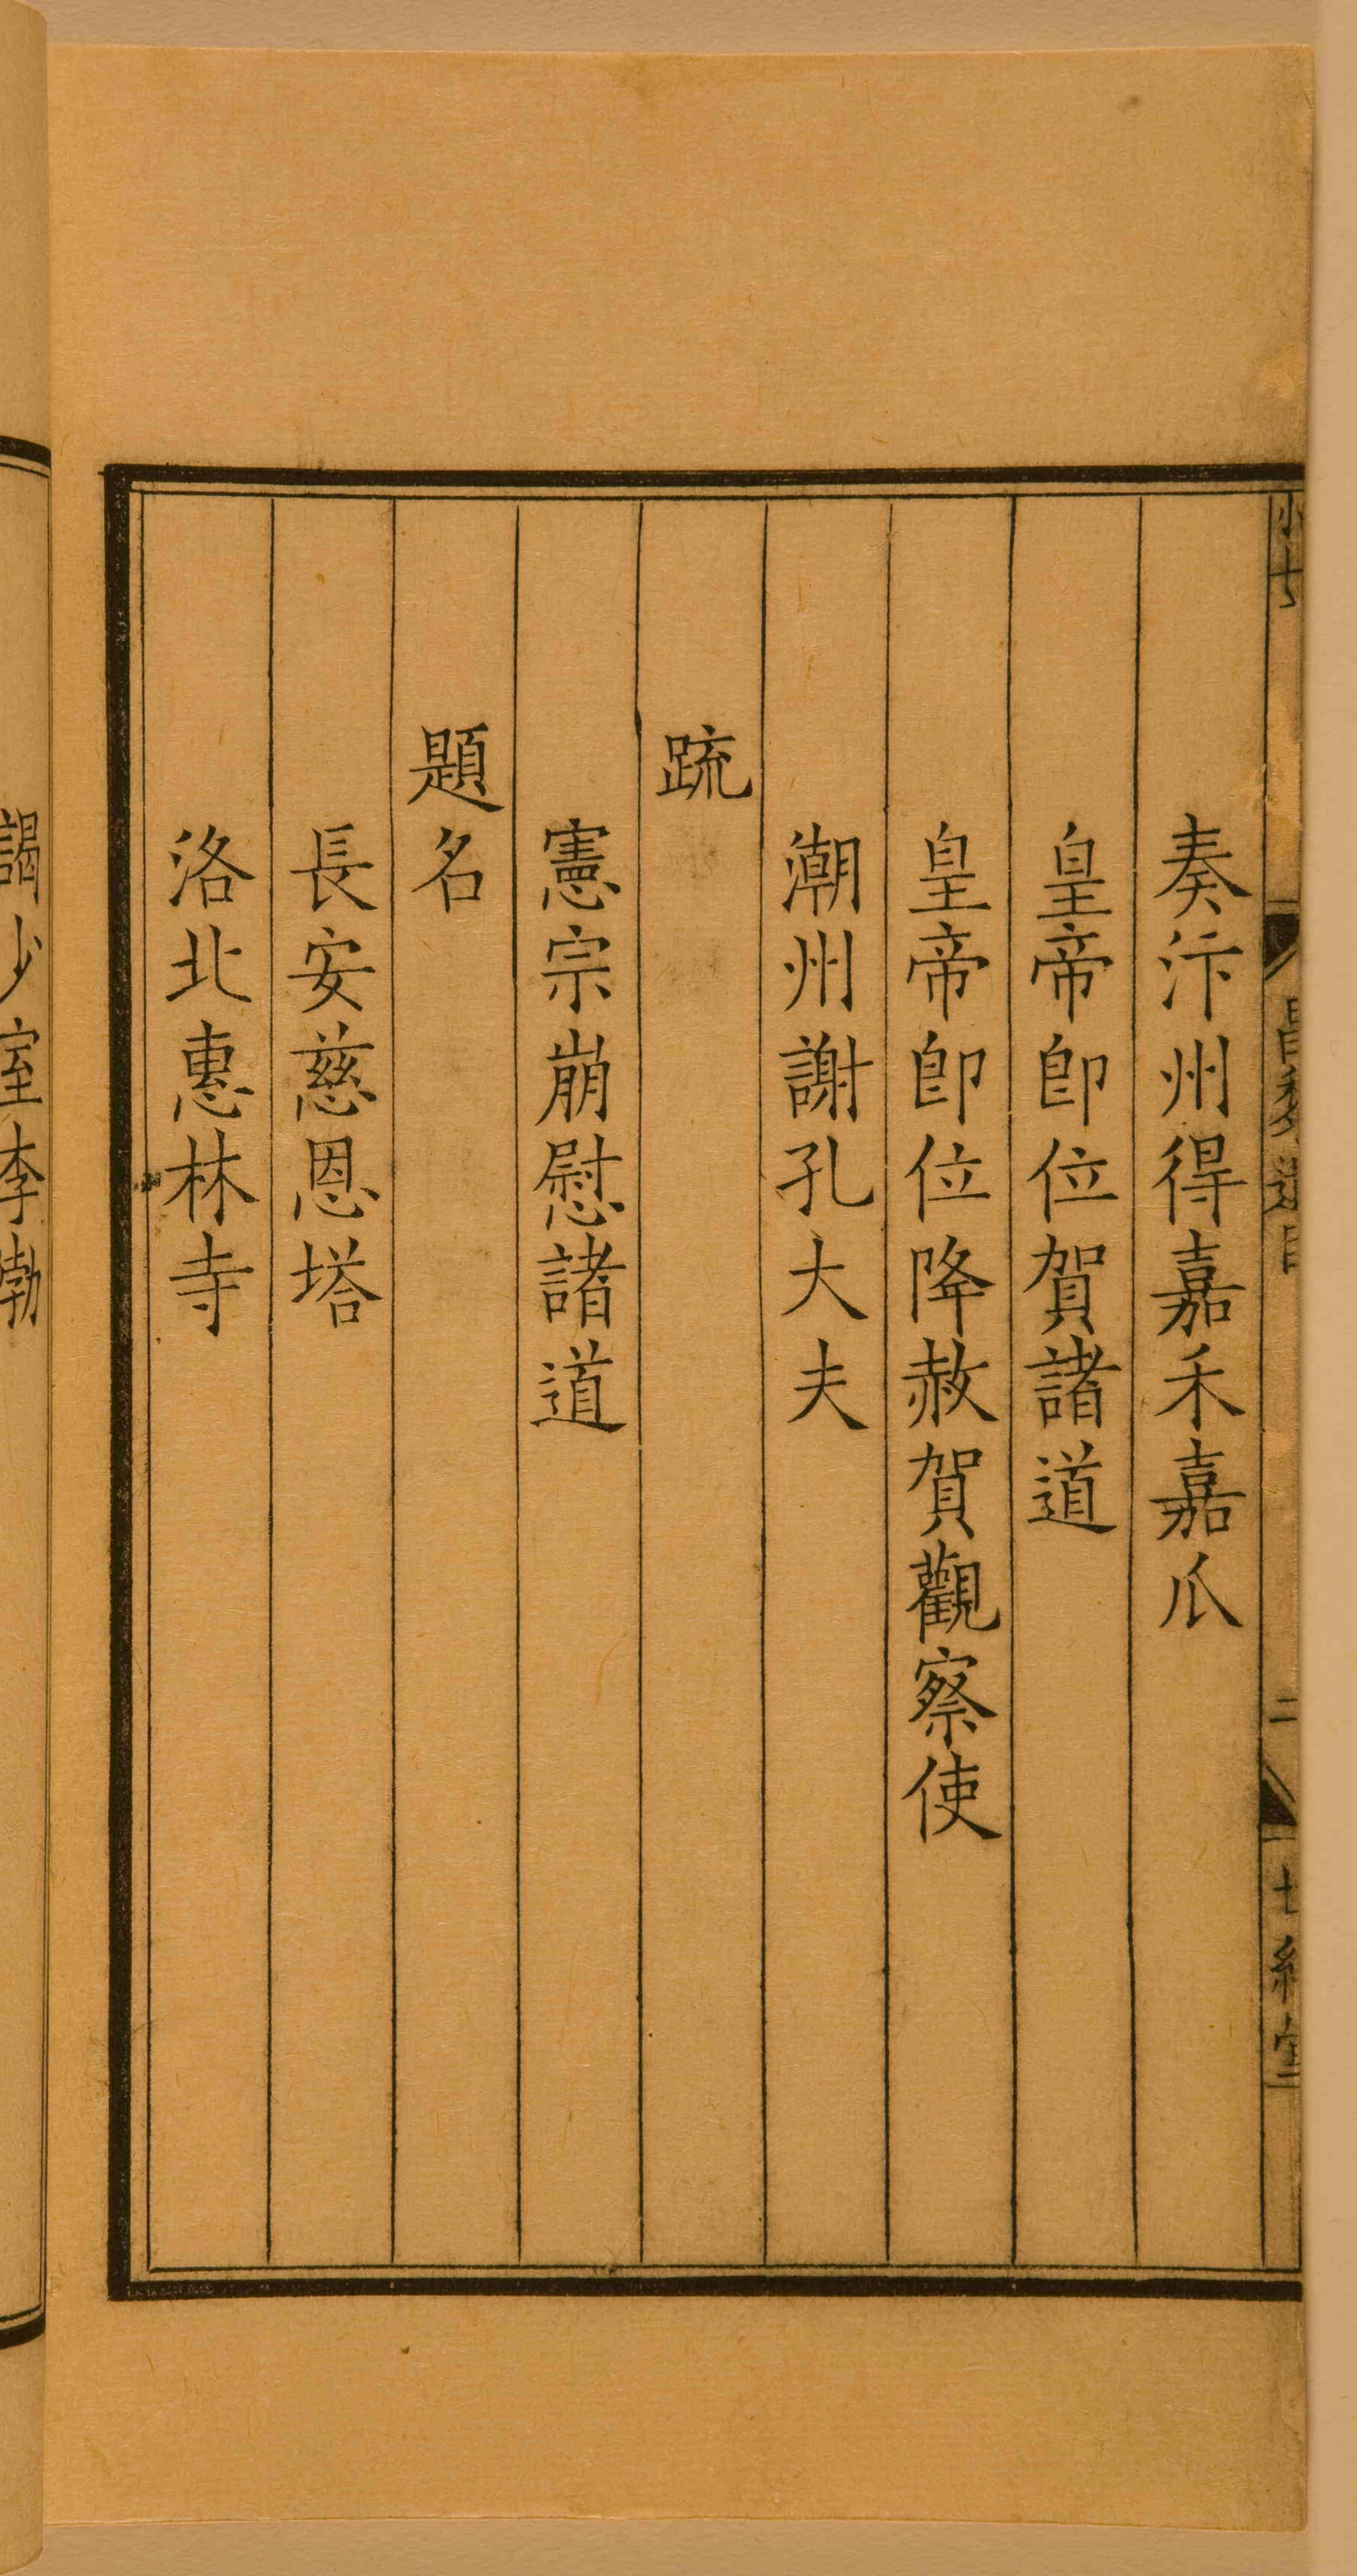 奏汴州得嘉禾嘉瓜
皇帝即位賀諸道
皇帝即位降赦賀觀察使
潮州謝孔大夫
疏
憲宗崩慰諸道
題名
長安慈恩塔
洛北惠林寺
謁少室李渤